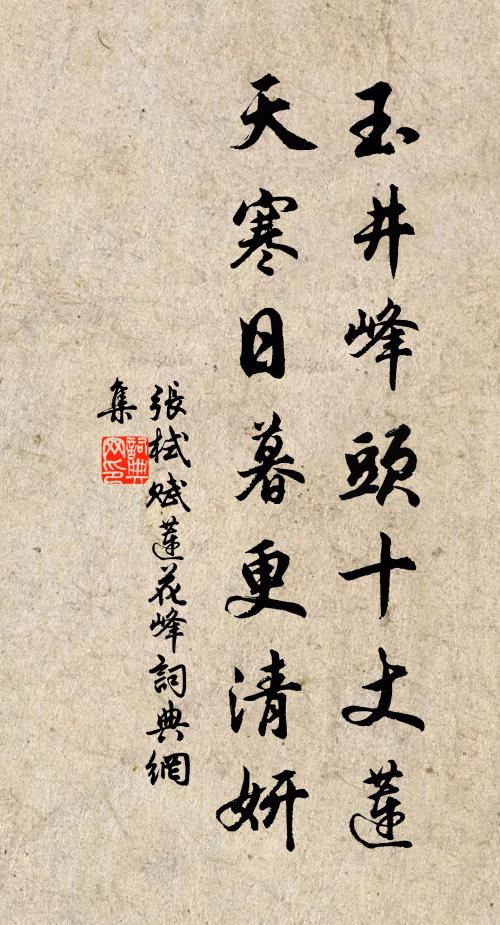 玉井峰頭十丈蓮
天寒日暮更清妍
張栻賦蓮花峰詞典網
集
詞典網印